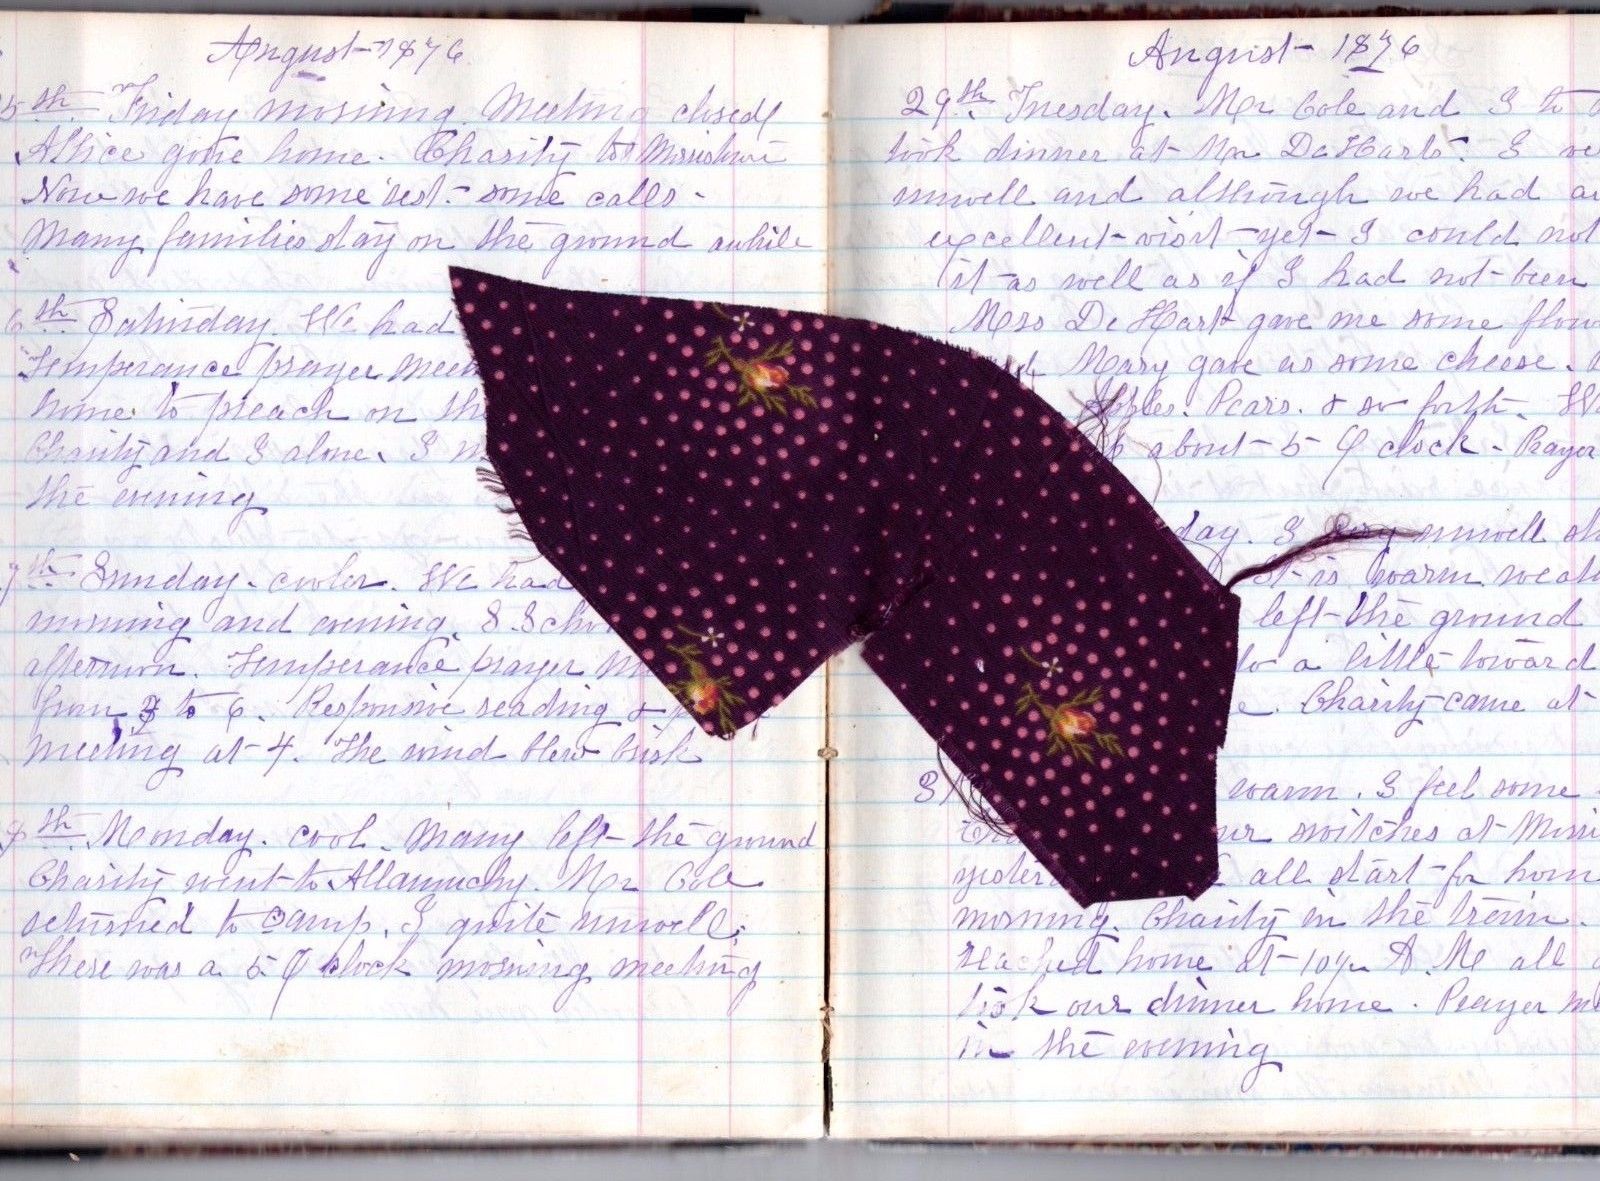 August 1876
5th Friday morning. Meeting closed
Allice gone home. Charity to Morristown
Now we have some rest - some calls -
Many families stay on the ground awhile
6th Saturday. We had
Temperance prayer meet
home to preach on the
Charity and I alone. I
the evening
7th Sunday - cooler. We had
morning and evening. S. Scho
afternoon. Temperance prayer m
from 3 to 6. Responsive reading &
meeting at 4. The wind blew brisk
8th Monday. cool. Many left the ground
Charity went to Allamuchy. Mr Cole
returned to camp. I quite unwell.
There was a 5 O clock morning meeting
August 1876
29th Tuesday. Mr Cole and I to
took dinner at Mr DeHarts. I ve
unwell and although we had a
excellent visit - yet I could not
it as well as if I had not been
Mrs DeHart gave me some flow
Mary gave us some cheese.
Apples. Pears. & so forth. We
about 5 O clock - Prayer
day. I very unwell
It is warm weath
left the ground
to a little toward
Charity came at
31 warm. I feel some
our switches at Morri
yester all start for hom
morning. Charity in the train.
reached home at 10 A.M. all
took our dinner home. Prayer me
in the evening